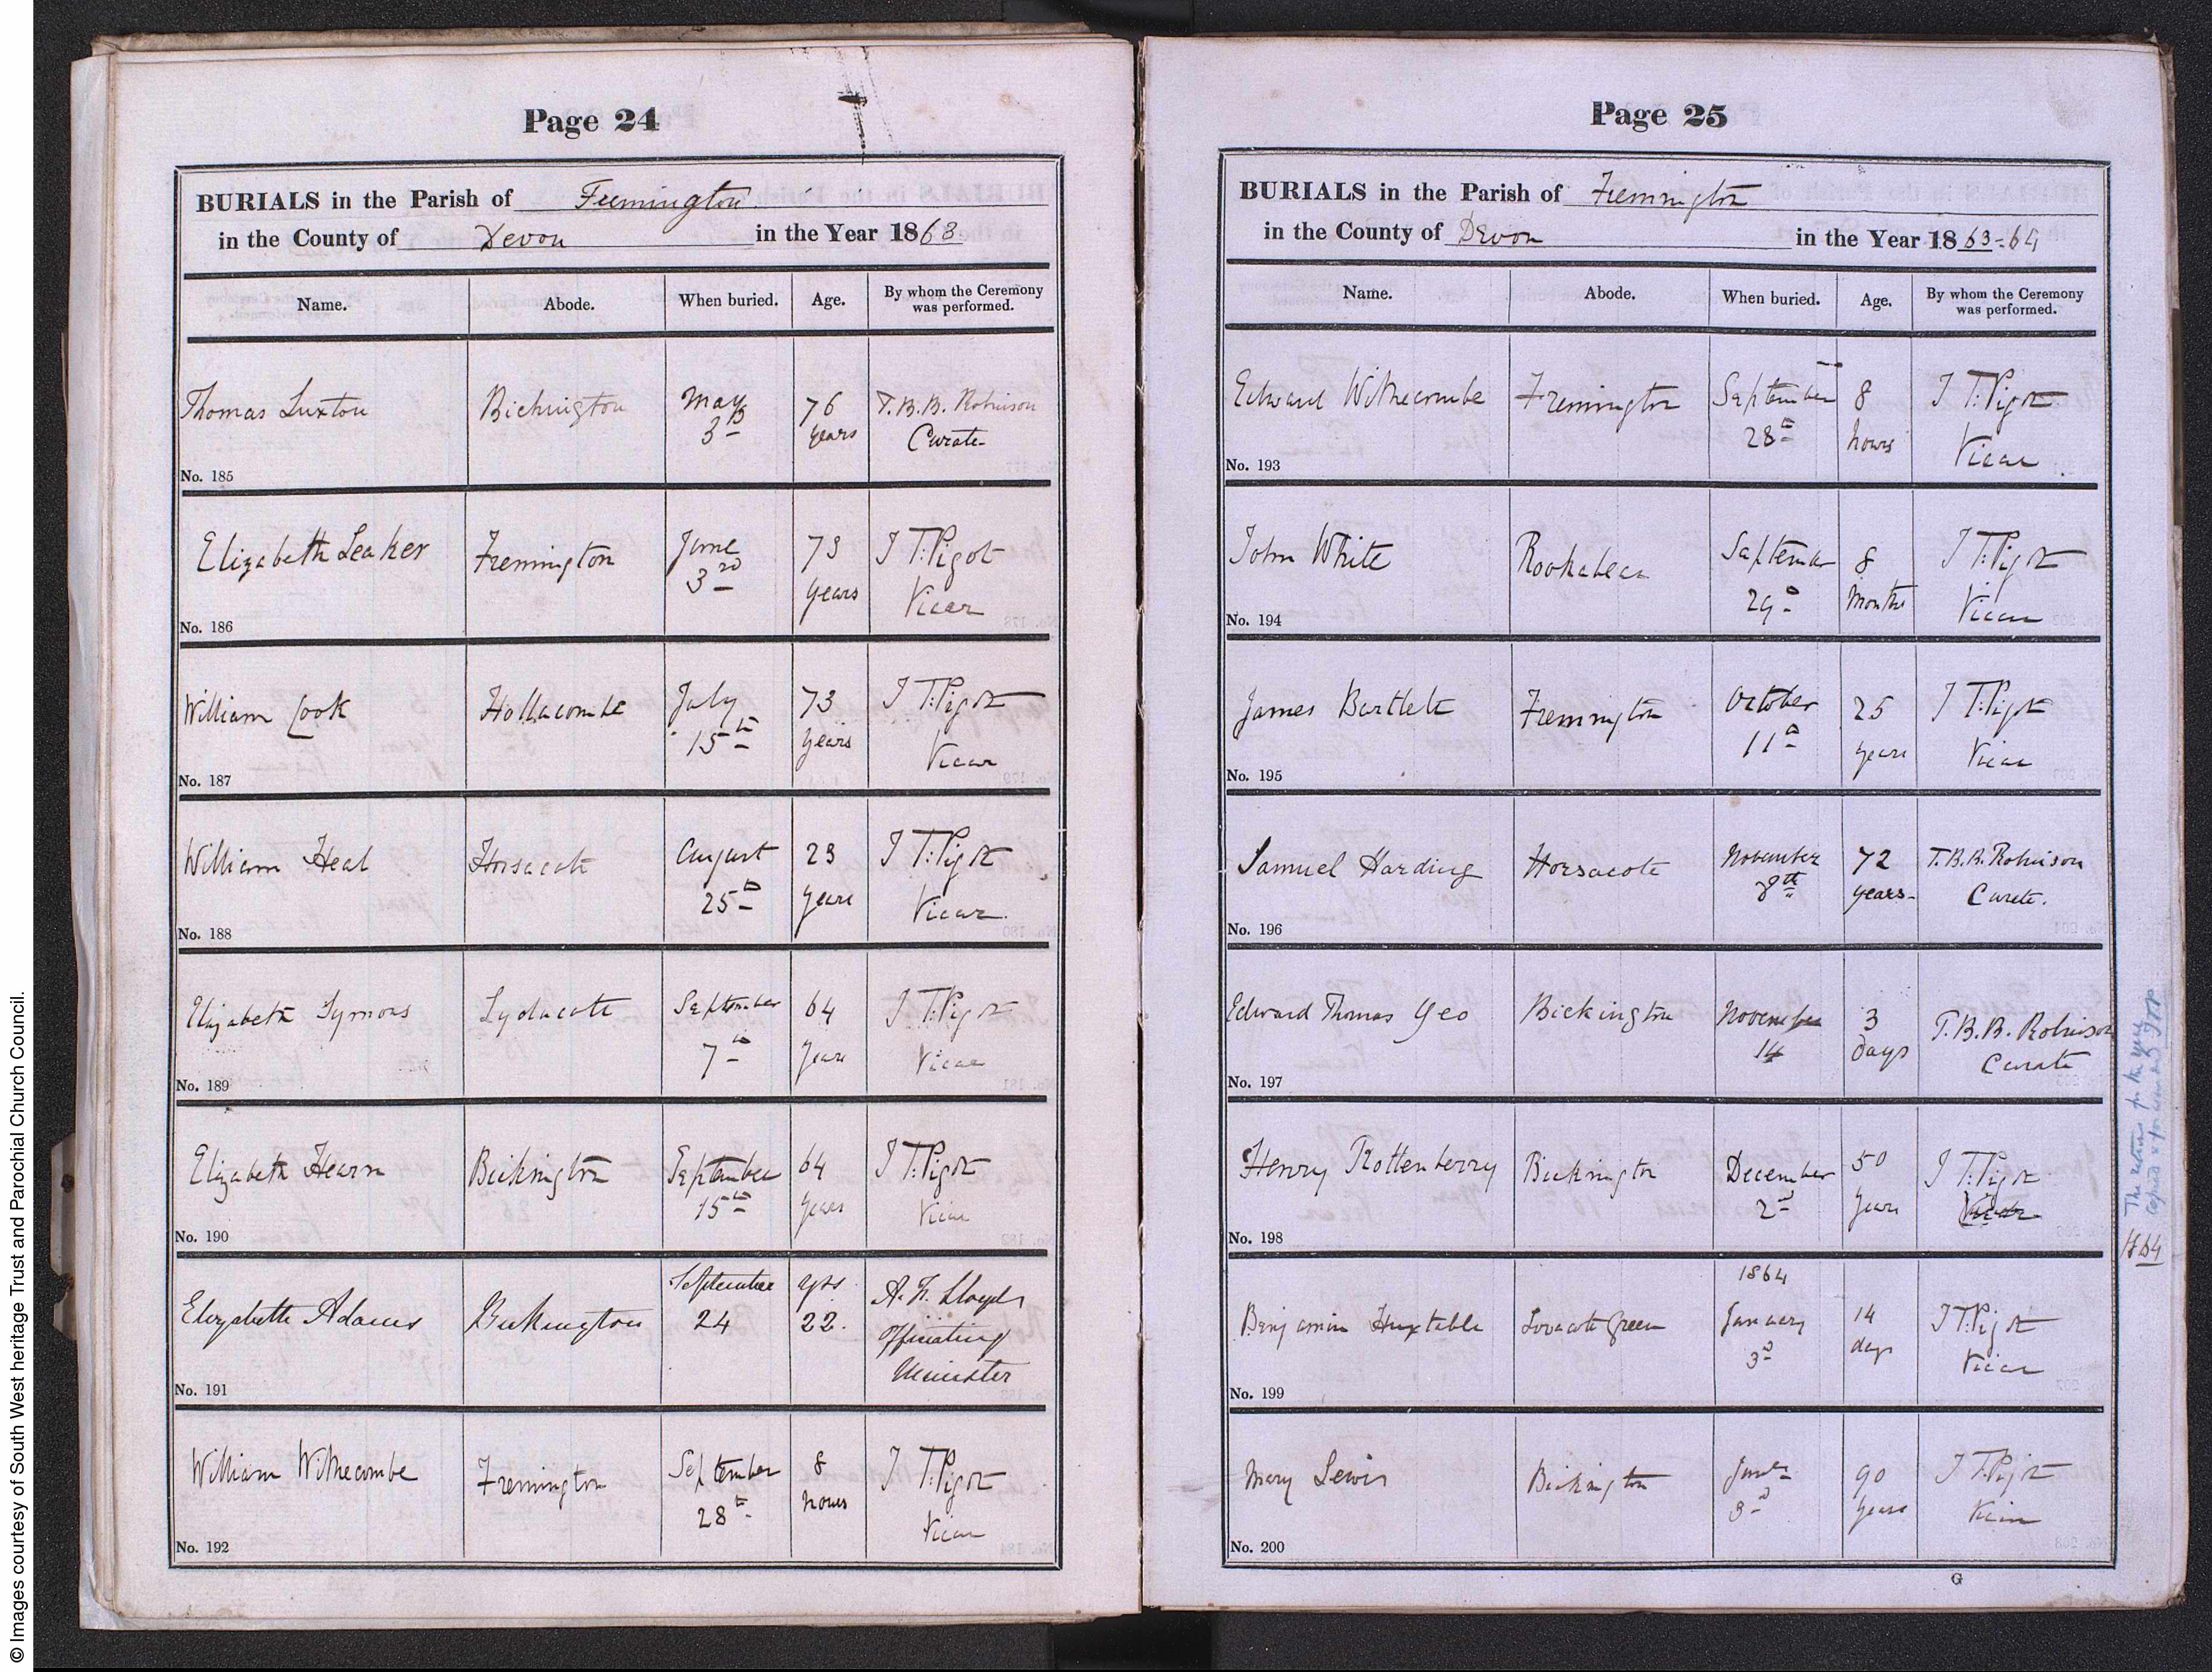 Page 24
BURIALS in the Parish of Fremington
in the County of Devon in the Year 1863
Name. Abode. When buried. Age. By whom the Ceremony was performed.
Thomas Luxton Bickington May 3rd 76 years T. B. B. Robinson Curate
No. 185
Elizabeth Leaker Fremington June 3rd 73 years I T: Pigot Vicar
No. 186
William Cook Hollacombe July 15th 73 years I T: Pigot Vicar
No. 187
William Heal Horsacott August 25th 23 years I T: Pigot Vicar
No. 188
Elizabeth Symons Lydacott September 7th 64 years I T: Pigot Vicar
No. 189
Elizabeth Hearn Bickington September 15th 64 years I T: Pigot Vicar
No. 190
Elizabeth Adams Bickington September 24 yrs 22. A. F. Lloyd Officiating Minister
No. 191
William Withecombe Fremington September 28th 8 hours I T: Pigot Vicar
No. 192
Page 25
BURIALS in the Parish of Fremington
in the County of Devon in the Year 1863-64
Name. Abode. When buried. Age. By whom the Ceremony was performed.
Edward Withecombe Fremington September 28th 8 hours I T: Pigot Vicar
No. 193
John White Rookabear September 29th 8 Months I T: Pigot Vicar
No. 194
James Bartlett Fremington October 11th 25 years I T: Pigot Vicar
No. 195
Samuel Harding Horsacote November 8th 72 years T. B. B. Robinson Curate.
No. 196
Edward Thomas Yeo Bickington November 14 3 days T. B. B. Robinson Curate
No. 197
Henry Rottenberry Bickington December 2nd 50 years I T: Pigot Vicar
No. 198
Benjamin Huxtable Lovacott Green 1864 January 3rd 14 days I T: Pigot Vicar
No. 199
Mary Lewis Bickington 3rd 90 years I T: Pigot Vicar
No. 200
G
The return for the year
copied & forwarded
1864
© Images courtesy of South West heritage Trust and Parochial Church Council.